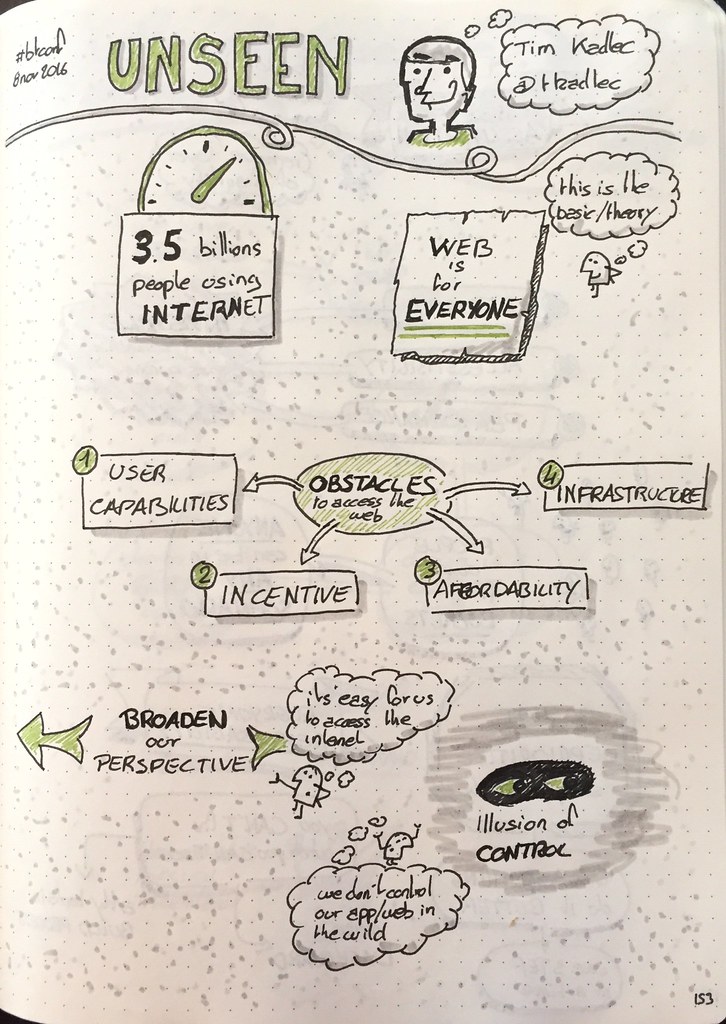 #btconf
8 nov 2016
UNSEEN
Tim Kadlec
@tkadlec
3.5 billions
people using
INTERNET
WEB
is
for
EVERYONE
this is the
basic/theory
OBSTACLES
to access the
web
1 USER
CAPABILITIES
2 INCENTIVE
3 AFFORDABILITY
4 INFRASTRUCTURE
BROADEN
our
PERSPECTIVE
it's easy for us
to access the
internet
Illusion of
CONTROL
we don't control
our app/web in
the wild
153